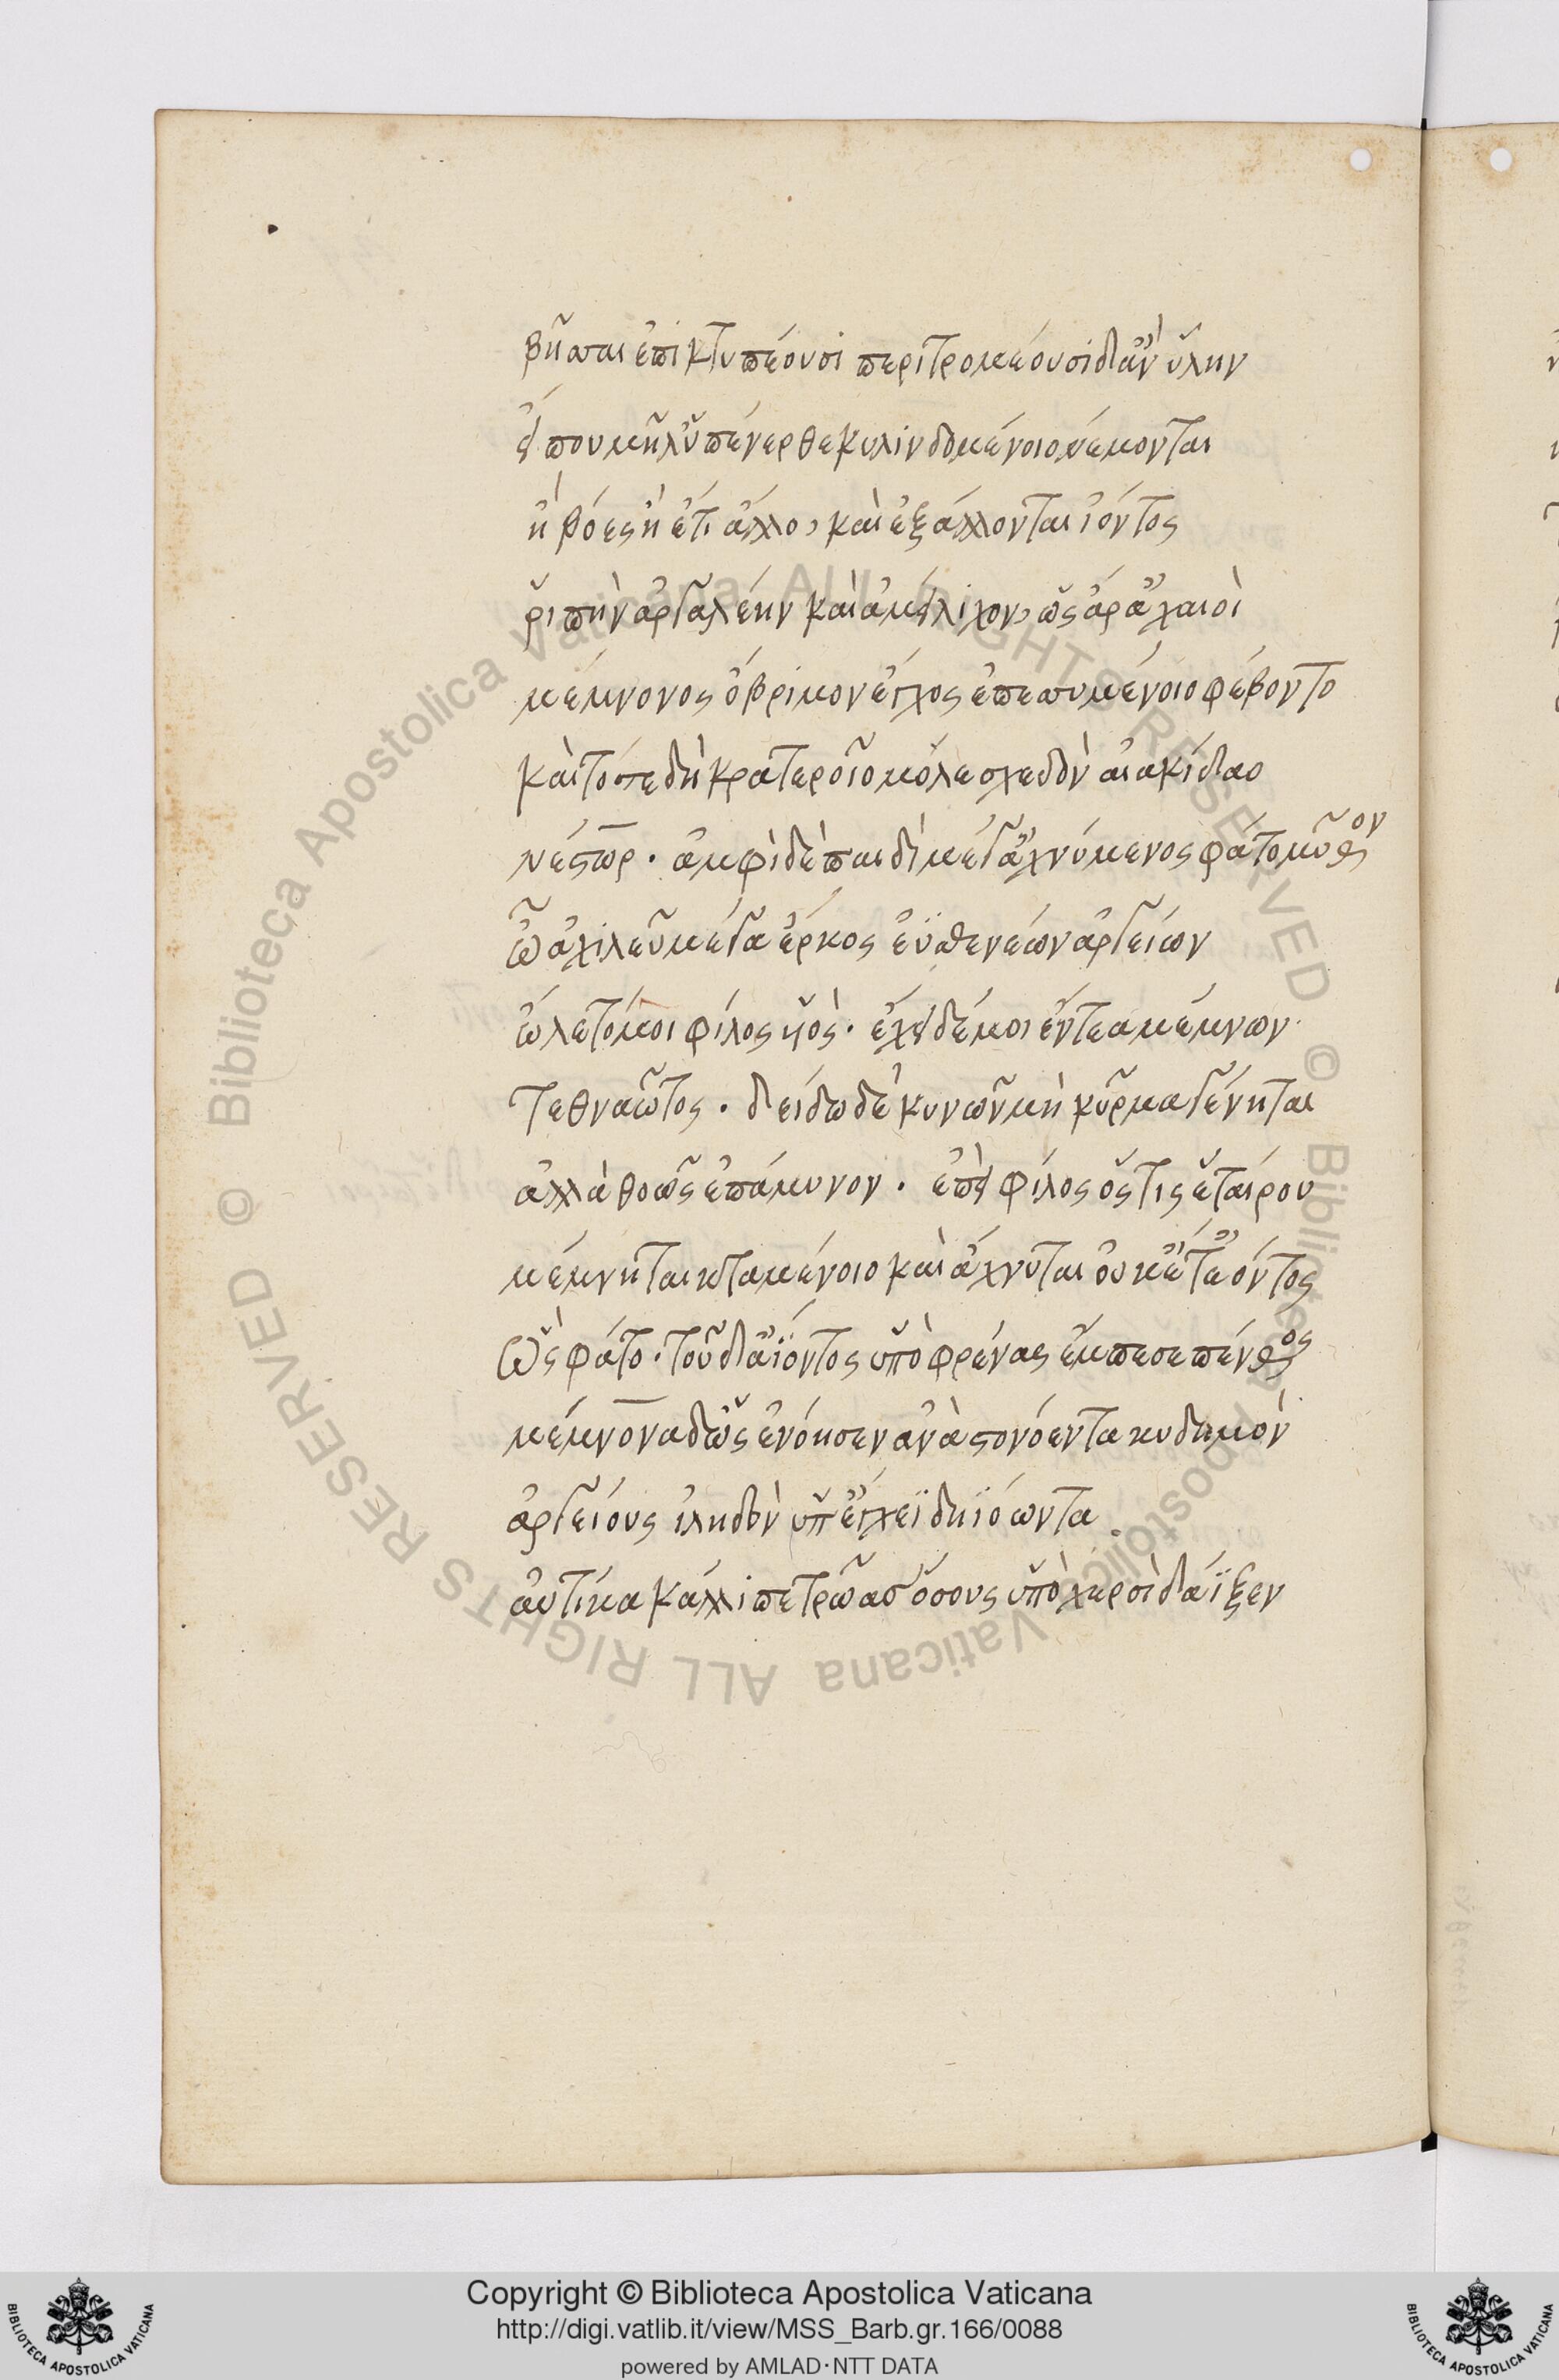 βῆσσαι ἐπικτυπέουσι περιτρομέουσι δ' ἀν' ὕλην
εἴ που μῆλ' ὑπένερθε κυλινδομένοιο νέμονται
ἢ βόες ἢ ἔτι ἄλλο, καὶ ἐξάλλονται ἰόντος
ῥιπὴν ἀργαλέην καὶ ἀμείλιχον, ὣς ἄρ' ἀχαιοὶ
μέμνονος ὄβριμον ἔγχος ἐπεσσυμένοιο φέβοντο
καὶ τότε δὴ κρατεροῖο μόλε σχεδὸν αἰακίδαο
νέστωρ. ἀμφὶ δὲ παιδὶ μέγ' ἀχνύμενος φάτο μῦθον
ὦ ἀχιλεῦ μέγα ἕρκος ἐϋσθενέων ἀργείων
ὤλετό μοι φίλος υἱός. ἔχει δέ μοι ἔντεα μέμνων
τεθναῶτος. δείδω δὲ κυνῶν μὴ κῦρμα γένηται
ἀλλὰ θοῶς ἐπάμυνον. ἐπεὶ φίλος ὅς τις ἑταίρου
μέμνηται κταμένοιο καὶ ἄχνυται οὐκέτ' ἐόντος
Ὣς φάτο. τοῦ δ' ἀΐοντος ὑπὸ φρένας ἔμπεσε πένθος
μέμνονα δ' ὡς ἐνόησεν ἀνὰ στονόεντα κυδοιμὸν
ἀργείους ἰληδὸν ὑπ' ἔγχεϊ δηϊόωντα
αὐτίκα κάλλιπε τρῶας ὅσους ὑπὸ χερσὶ δάϊξεν
Copyright © Biblioteca Apostolica Vaticana
http://digi.vatlib.it/view/MSS_Barb.gr.166/0088
powered by AMLAD·NTT DATA